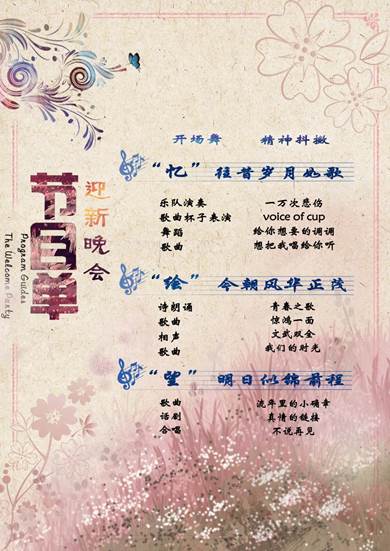 节目单
迎新晚会
Program Guides
The Welcome Party
开场舞 精神抖擞
“忆” 往昔岁月如歌
乐队演奏 一万次悲伤
歌曲杯子表演 voice of cup
舞蹈 给你想要的调调
歌曲 想把我唱给你听
“绘” 今朝风华正茂
诗朗诵 青春之歌
歌曲 惊鸿一面
相声 文武双全
歌曲 我们的时光
“望” 明日似锦前程
歌曲 流年里的小确幸
话剧 真情的链接
合唱 不说再见